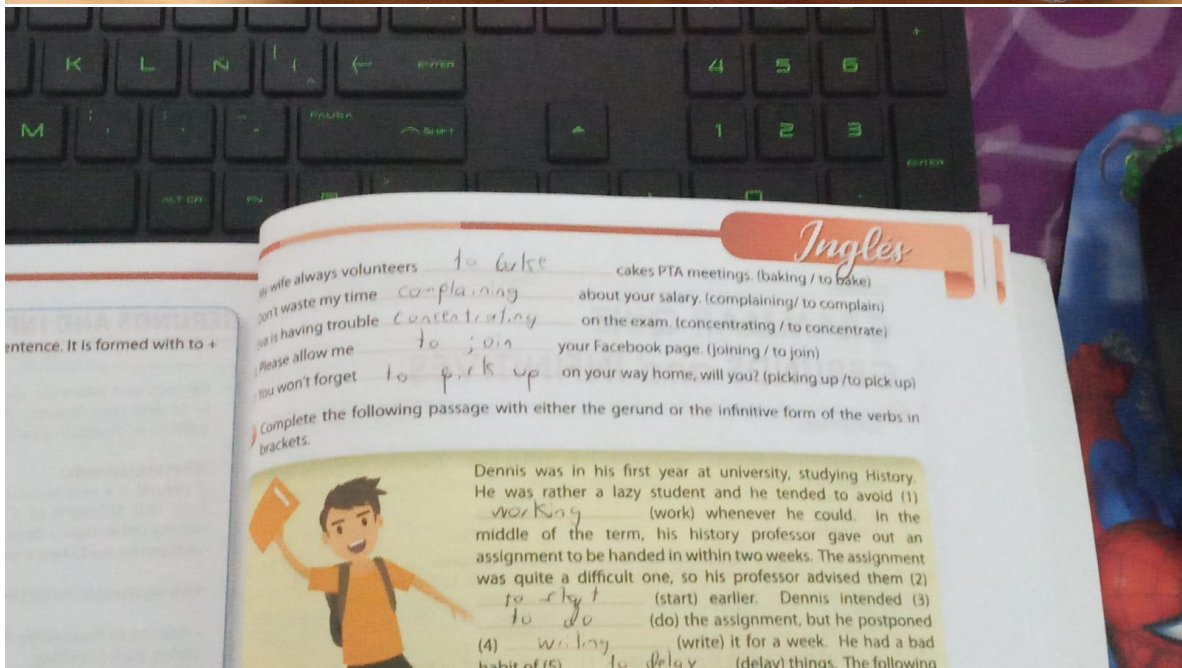 K L Ñ ENTER 4 5 6 +
M PAUSA SHIFT 1 2 3
ENTER
ALT GR FN
Inglés
wife always volunteers to bake cakes PTA meetings. (baking / to bake)
waste my time complaining about your salary. (complaining/ to complain)
is having trouble concentrating on the exam. (concentrating / to concentrate)
Please allow me to join your Facebook page. (joining / to join)
You won't forget to pick up on your way home, will you? (picking up /to pick up)
entence. It is formed with to +
Complete the following passage with either the gerund or the infinitive form of the verbs in
brackets.
Dennis was in his first year at university, studying History.
He was rather a lazy student and he tended to avoid (1)
working (work) whenever he could. In the
middle of the term, his history professor gave out an
assignment to be handed in within two weeks. The assignment
was quite a difficult one, so his professor advised them (2)
to (start) earlier. Dennis intended (3)
to do (do) the assignment, but he postponed
(4) writing (write) it for a week. He had a bad
habit of (5) to delay (delay) things. The following